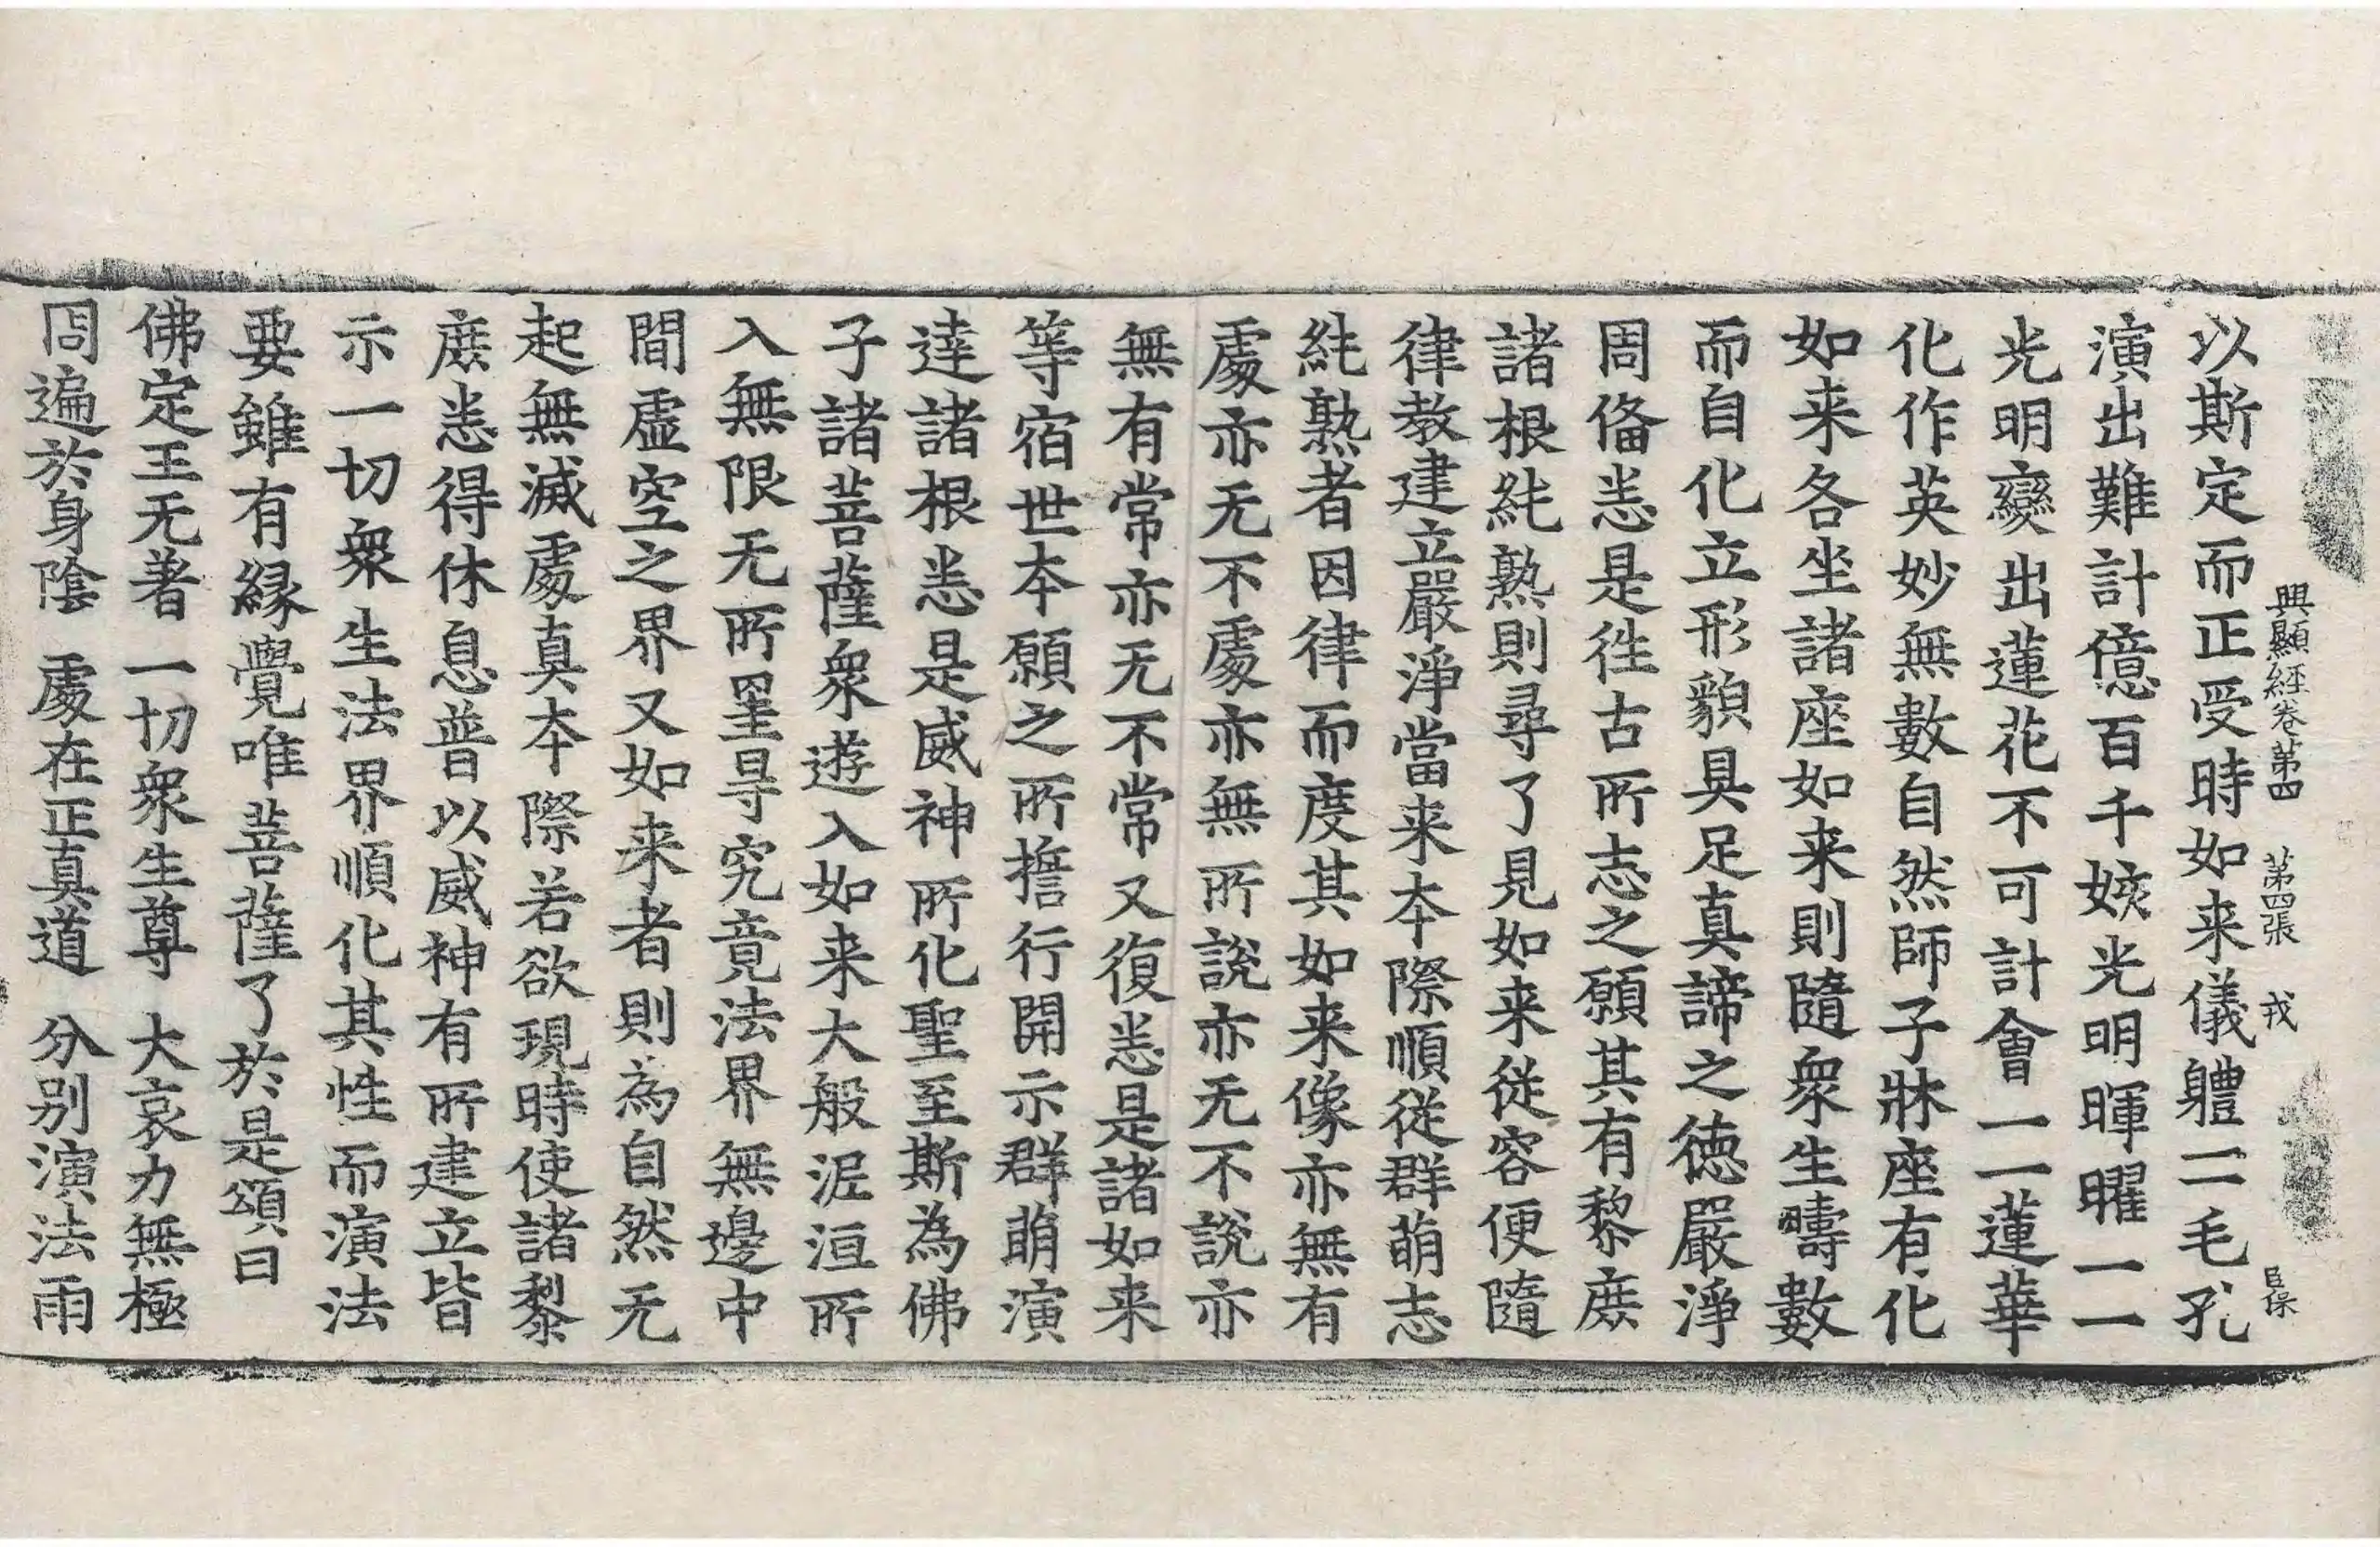 興顯經卷第四 第四張 戎 臣保
以斯定而正受時如来儀軆一一毛孔
演出難計億百千姟光明暉曜一一
光明變出蓮花不可計會一一蓮華
化作英妙無數自然師子牀座有化
如来各坐諸座如来則隨衆生疇數
而自化立形貌具足真諦之徳嚴淨
周俻悉是徃古所志之願其有黎庶
諸根純熟則尋了見如来従容便隨
律教建立嚴淨當来本際順従群萌志
純熟者因律而度其如来像亦無有
處亦无不處亦無所說亦无不說亦
無有常亦无不常又復悉是諸如来
等宿世本願之所擔行開示群萌演
達諸根悉是威神所化聖至斯為佛
子諸菩薩衆遊入如来大般泥洹所
入無限无所罣㝵究竟法界無邊中
間虛空之界又如来者則為自然无
起無滅處真本際若欲現時使諸黎
庶悉得休息普以威神有所建立皆
示一切衆生法界順化其性而演法
要雖有縁覺唯菩薩了於是頌曰
佛定王无著 一切衆生尊 大哀力無極
周遍於身陰 處在正真道 分别演法雨